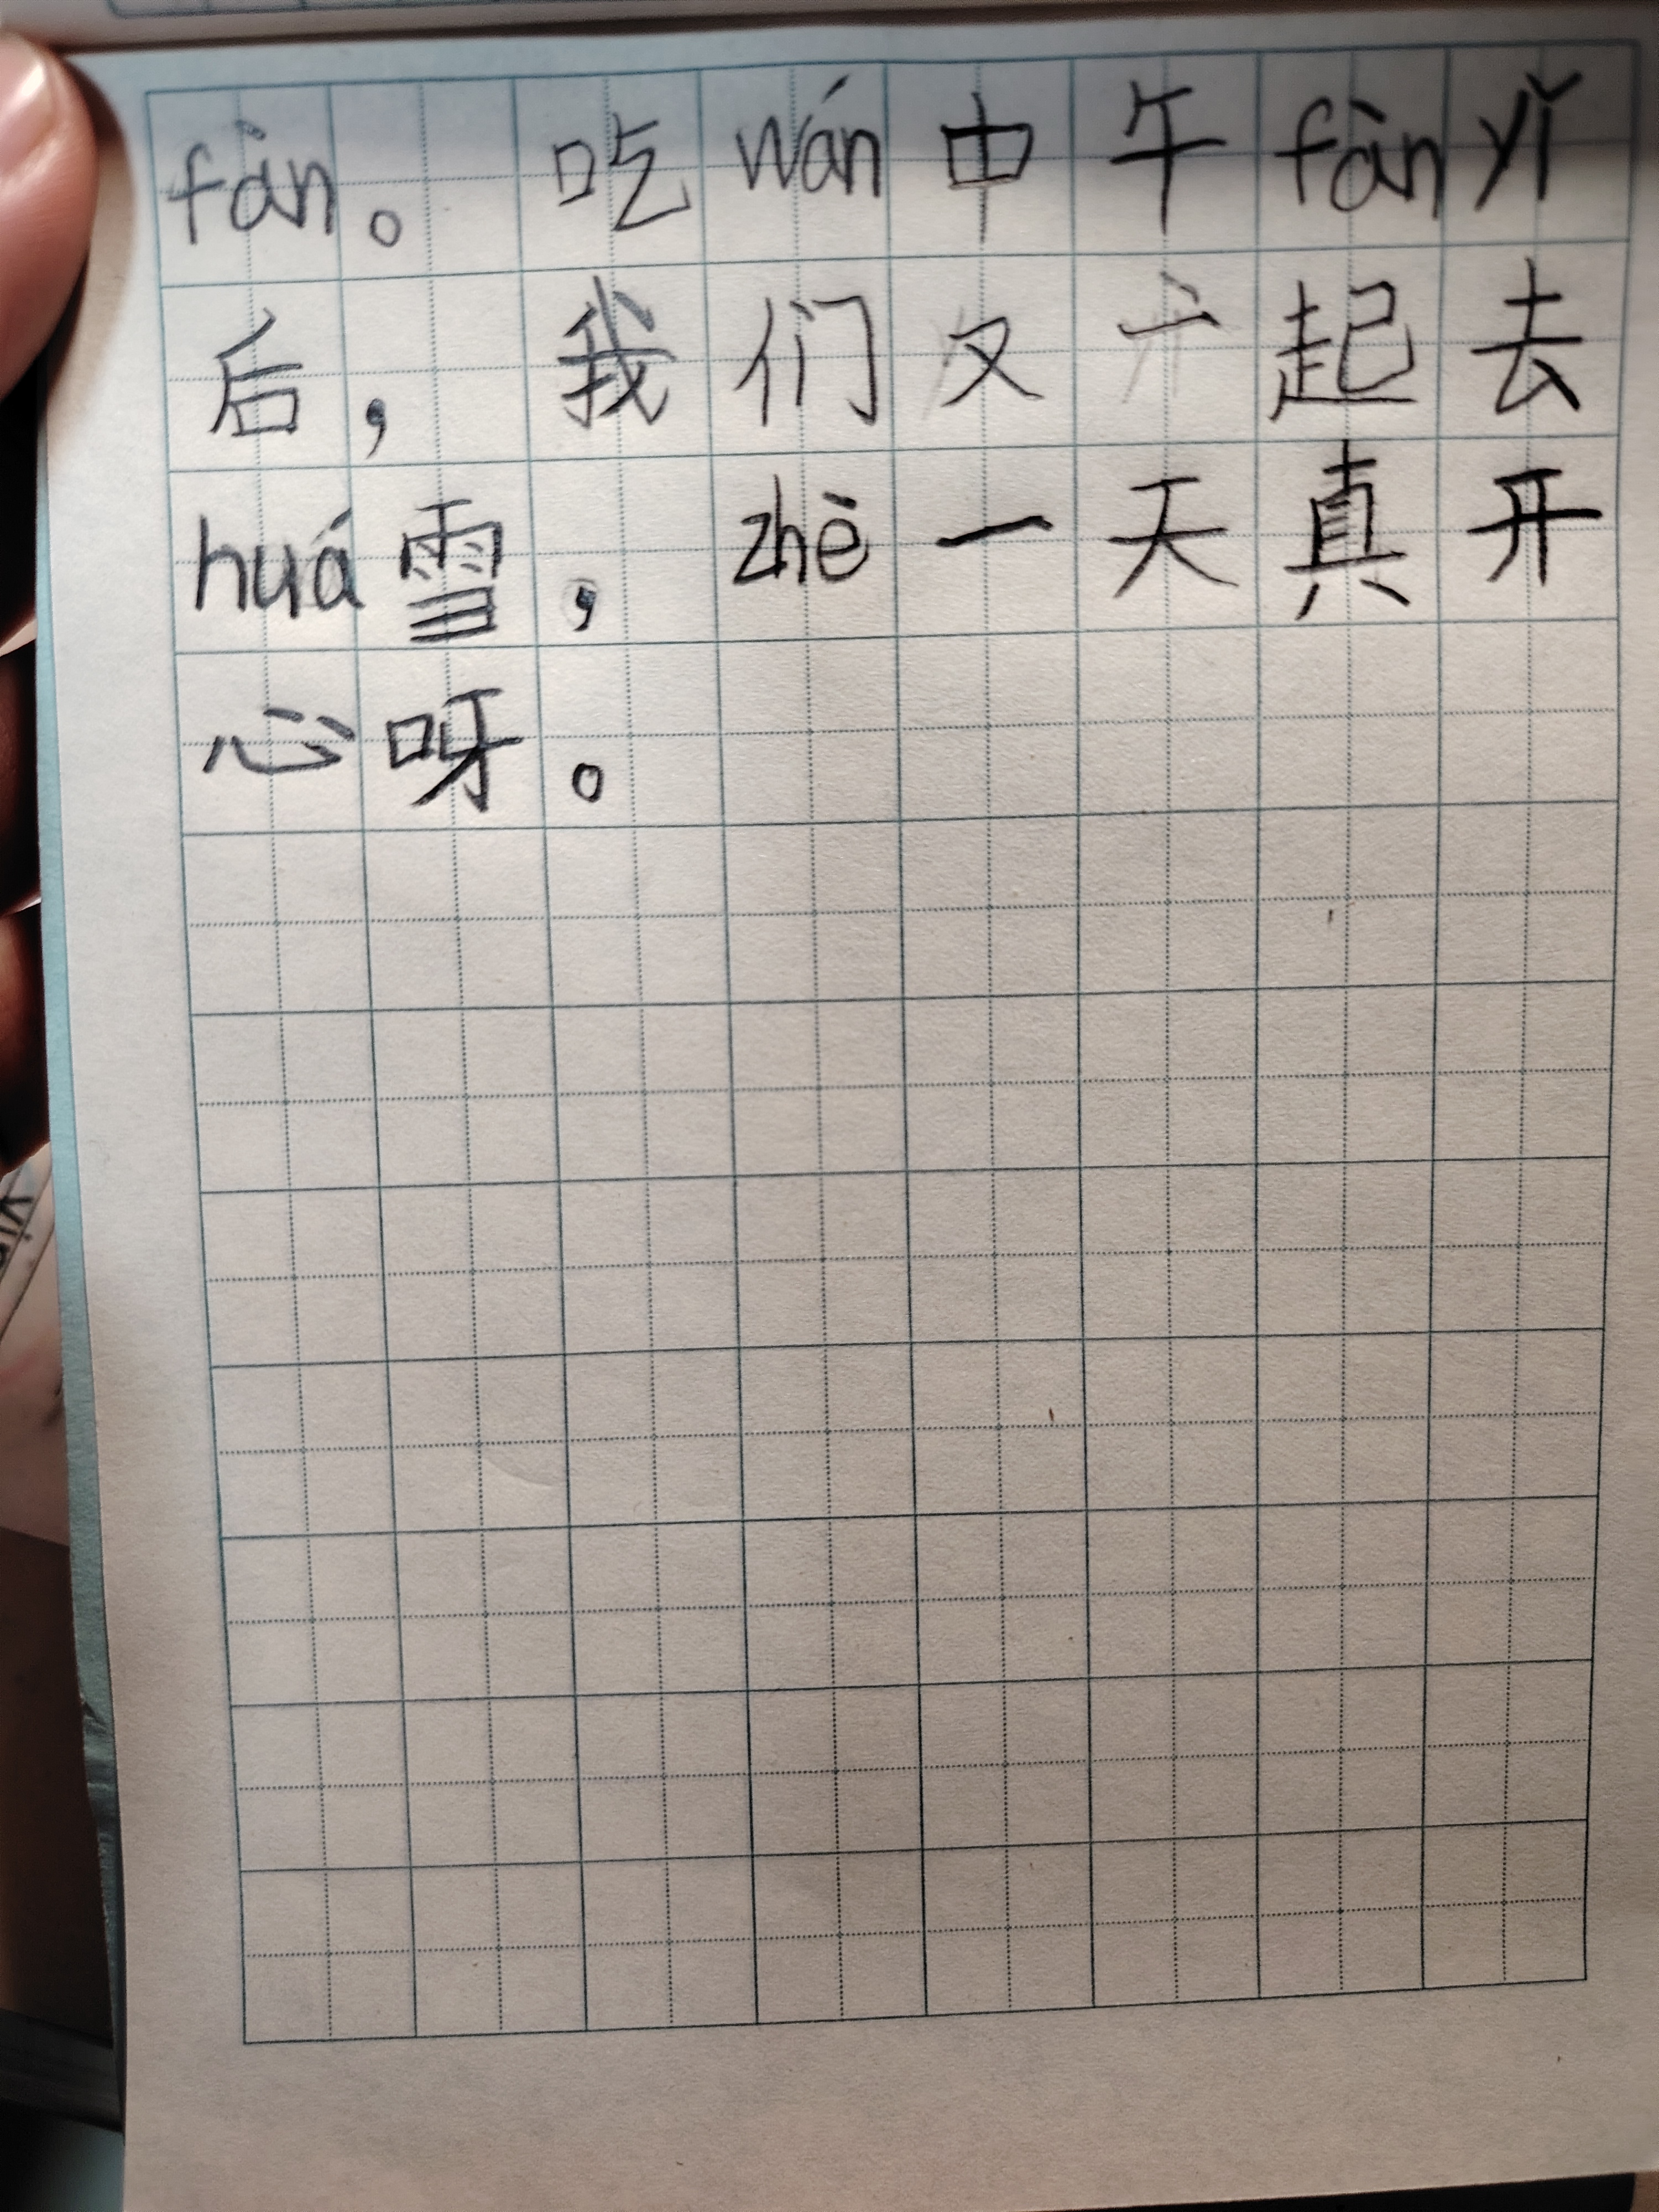 fàn。 吃wán中午fànyǐ
后， 我们又一起去
huá雪， zhè一天真开
心呀。